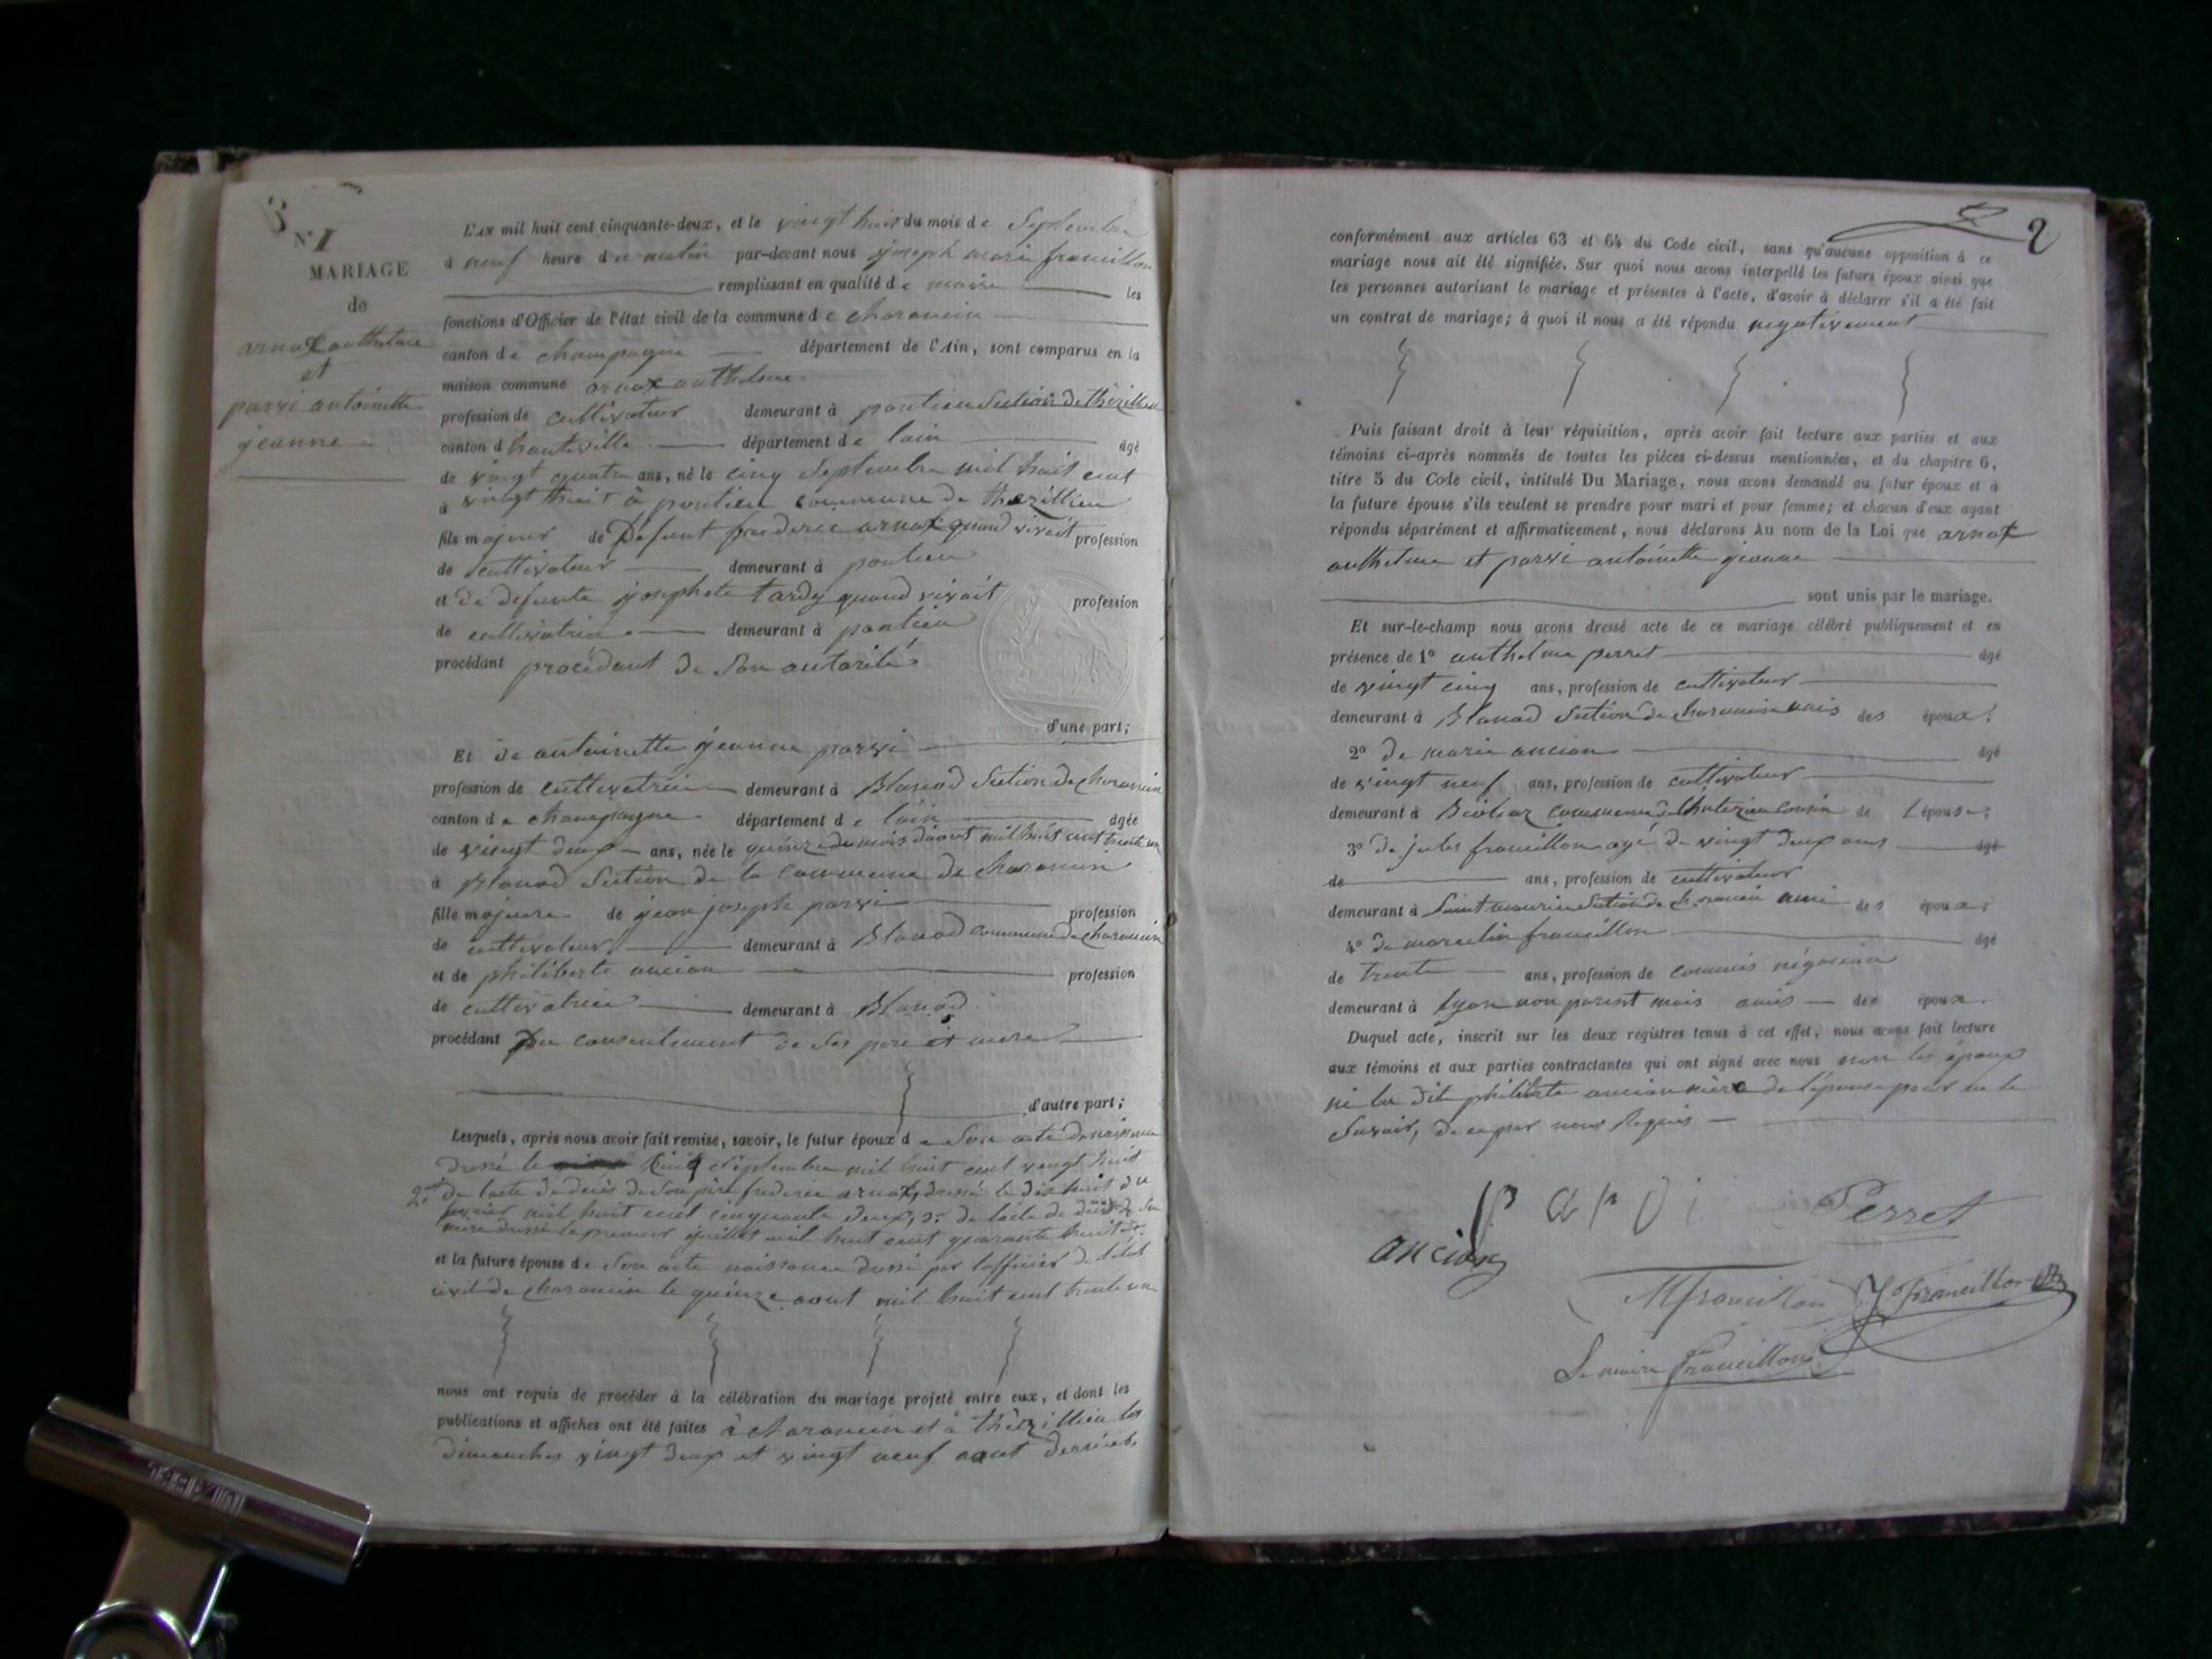 3
N° 1
MARIAGE
de
arnax anthelme
et
parvi antoinette
jeanne
L'AN mil huit cent cinquante-deux, et le vingt huit du mois de Septembre
à neuf heure du matin par-devant nous joseph marie francillon
remplissant en qualité de maire les
fonctions d'Officier de l'état civil de la commune de charancin
canton de champagne département de l'Ain, sont comparus en la
maison commune arnax anthelme
profession de cultivateur demeurant à ponticu Section de thézillieu
canton d hauteville département de lain âgé
de vingt quatre ans, né le cinq Septembre mil huit cent
à vingt huit à pontieu commune de thezillieu
fils majeur de Défunt frederic arnax quand vivait profession
de cultivateur demeurant à pontieu
et de défunte josephete tardy quand vivait profession
de cultivatrice demeurant à pontieu
procédant procédant de Son autorités
d'une part;
Et de antoinette jeanne parvi
profession de cultivatrice demeurant à Blanod Section de charancin
canton de champagne département de lain âgée
de vingt deux ans, née le quinze du mois d'aout mil huit cent trente un
à Blanod Section de la commune de charancin
fille majeure de jean joseph parvi profession
de cultivateur demeurant à Blanod commune de charancin
et de philiberte ancian profession
de cultivatrice demeurant à Blanod
procédant Du consentement de Ses pere et mere
d'autre part;
Lesquels, après nous avoir fait remise, savoir, le futur époux de Son acte de naissance
dressé le huit Septembre mil huit cent vingt huit
2° de lacte de décès de Son père frederic arnax, dressé le dix huit du
janvier mil huit cent cinquante deux, 3° de lacte de décès de Sa
mère dressé le premier juillet mil huit cent quarante huit
et la future épouse de Son acte naissance dressé par lofficier de létat
civil de charancin le quinze aout mil huit cent trente un
nous ont requis de procéder à la célébration du mariage projeté entre eux, et dont les
publications et affiches ont été faites à charancin et à thézillieu les
dimanches vingt deux et vingt neuf aout derniers
2
conformément aux articles 63 et 64 du Code civil, sans qu'aucune opposition à ce
mariage nous ait été signifiée. Sur quoi nous avons interpellé les futurs époux ainsi que
les personnes autorisant le mariage et présentes à l'acte, d'avoir à déclarer s'il a été fait
un contrat de mariage; à quoi il nous a été répondu negativement
Puis faisant droit à leur réquisition, après avoir fait lecture aux parties et aux
témoins ci-après nommés de toutes les pièces ci-dessus mentionnées, et du chapitre 6,
titre 5 du Code civil, intitulé Du Mariage, nous avons demandé au futur époux et à
la future épouse s'ils veulent se prendre pour mari et pour femme; et chacun d'eux ayant
répondu séparément et affirmativement, nous déclarons Au nom de la Loi que arnax
anthelme et parvi antoinette jeanne
sont unis par le mariage.
Et sur-le-champ nous avons dressé acte de ce mariage célébré publiquement et en
présence de 1° anthelme perret âgé
de vingt cinq ans, profession de cultivateur
demeurant à Blanod Section de charancin amis des époux;
2° de marie ancian âgé
de vingt neuf ans, profession de cultivateur
demeurant à commune de cousin de l'épouse;
3° de jules francillon agé de vingt deux ans âgé
de ans, profession de cultivateur
demeurant à Saint maurice Section de charancin ami des époux;
4° de marcelin francillon âgé
de trente ans, profession de commis négocian
demeurant à lyon non parent mais amis des époux.
Duquel acte, inscrit sur les deux registres tenus à cet effet, nous avons fait lecture
aux témoins et aux parties contractantes qui ont signé avec nous non les époux
ni la dit philiberte ancian mère de l'épouse pour ne le
Savoir, de ce par nous Requis
parvi
Perret
ancian
M francillon
J francillon
Le maire francillon